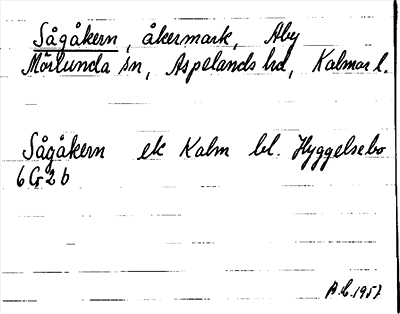 Sågåkern, åkermark, Åby
Mörlunda sn, Aspelands hd, Kalmar l.
Sågåkern ek Kalm bl. Hyggelsebo
6G2b
A.C. 1957